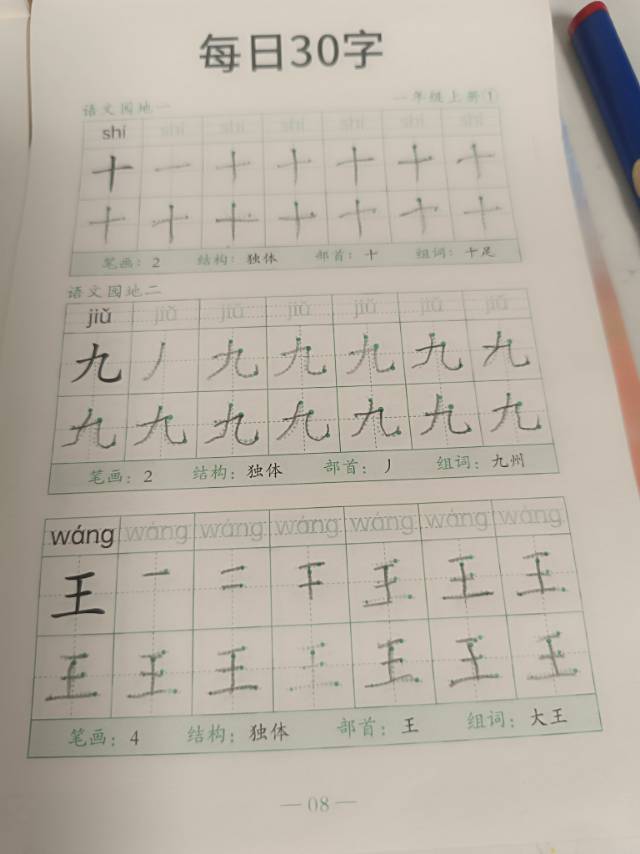 每日30字
语文园地一 一年级上册①
shí shí shí shí shí shí shí
十 一 十 十 十 十 十
十 十 十 十 十 十 十
笔画：2 结构：独体 部首：十 组词：十足
语文园地二
jiǔ jiǔ jiǔ jiǔ jiǔ jiǔ jiǔ
九 丿 九 九 九 九 九
九 九 九 九 九 九 九
笔画：2 结构：独体 部首：丿 组词：九州
wáng wáng wáng wáng wáng wáng wáng
王 一 二 干 王 王 王
王 王 王 王 王 王 王
笔画：4 结构：独体 部首：王 组词：大王
— 08 —